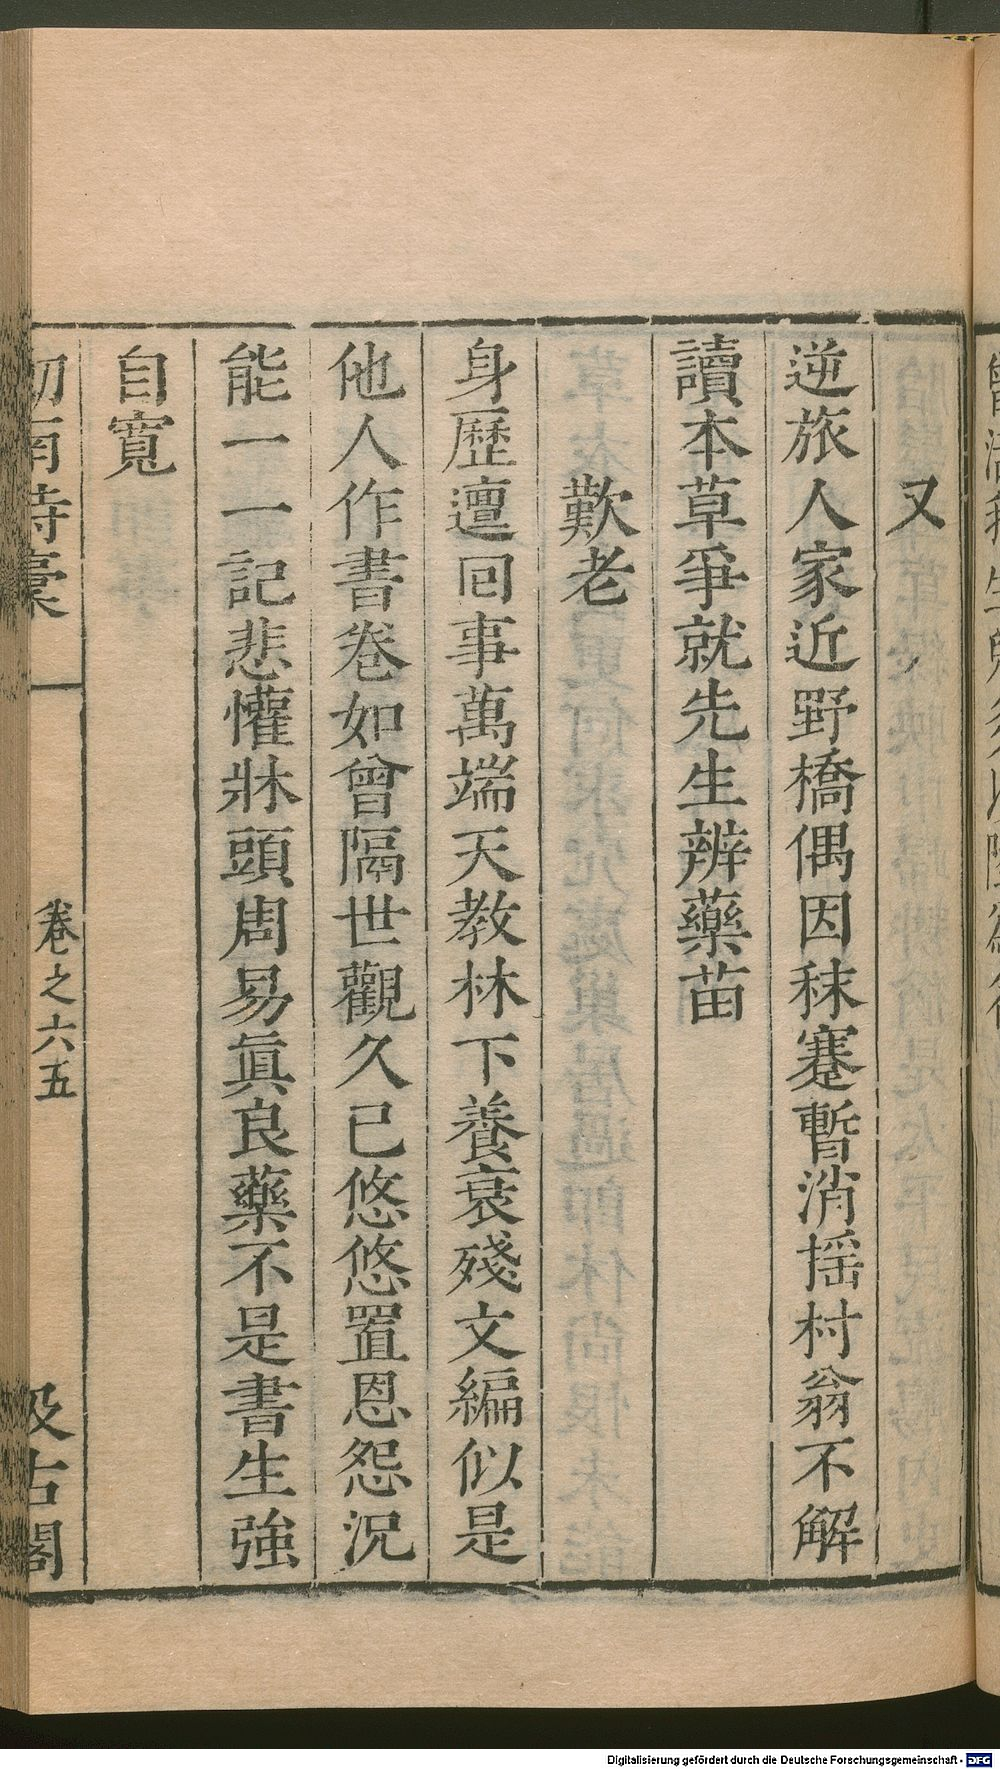 又
逆旅人家近野橋偶因秣蹇暫消揺村翁不解
讀本草爭就先生辨藥苗
歎老
身歷邅回事萬端天教林下養衰殘文編似是
他人作書卷如曾隔世觀久已悠悠置恩怨況
能一一記悲懽牀頭周易眞良藥不是書生強
自寬
劒南詩稾 卷之六五 汲古閣
Digitalisierung gefördert durch die Deutsche Forschungsgemeinschaft - DFG